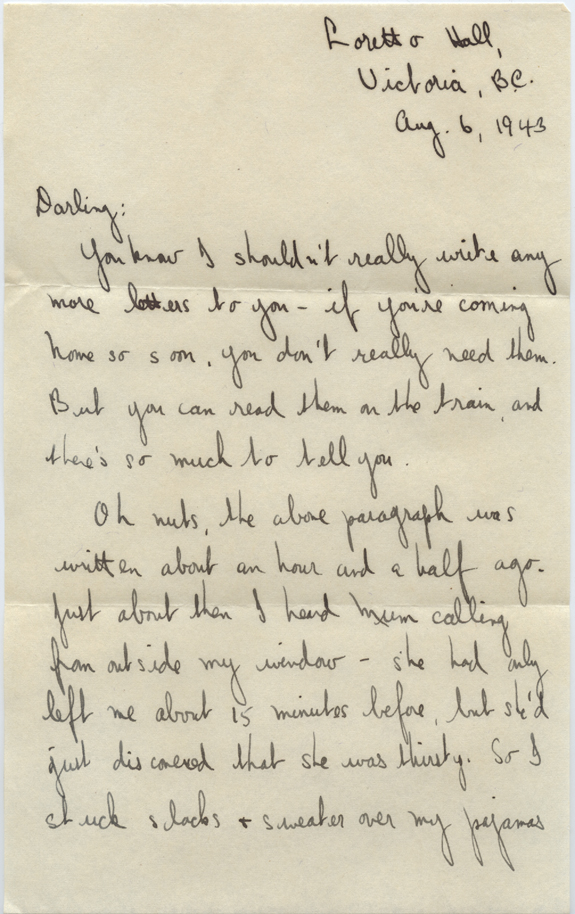 Loretto Hall,
Victoria, B.C.
Aug. 6, 1943
Darling:
You know I shouldn't really write any
more letters to you - if you're coming
home so soon, you don't really need them.
But you can read them on the train, and
there's so much to tell you.
Oh nuts, the above paragraph was
written about an hour and a half ago.
Just about then I heard Mum calling
from outside my window - she had only
left me about 15 minutes before, but she'd
just discovered that she was thirsty. So I
stuck slacks + sweater over my pajamas